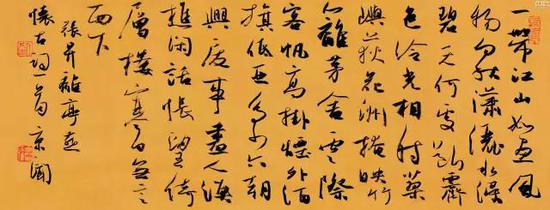 一帶江山如畫風
物向秋瀟灑水浸
碧天何處斷霽
色冷光相射蓼
嶼荻花洲掩映竹
籬茅舍雲際
客帆高掛煙外酒
旗低亞多少六朝
興廢事盡入漁
樵閑話悵望倚
層樓寒日無言
西下
張昇離亭燕
懷古詞一首